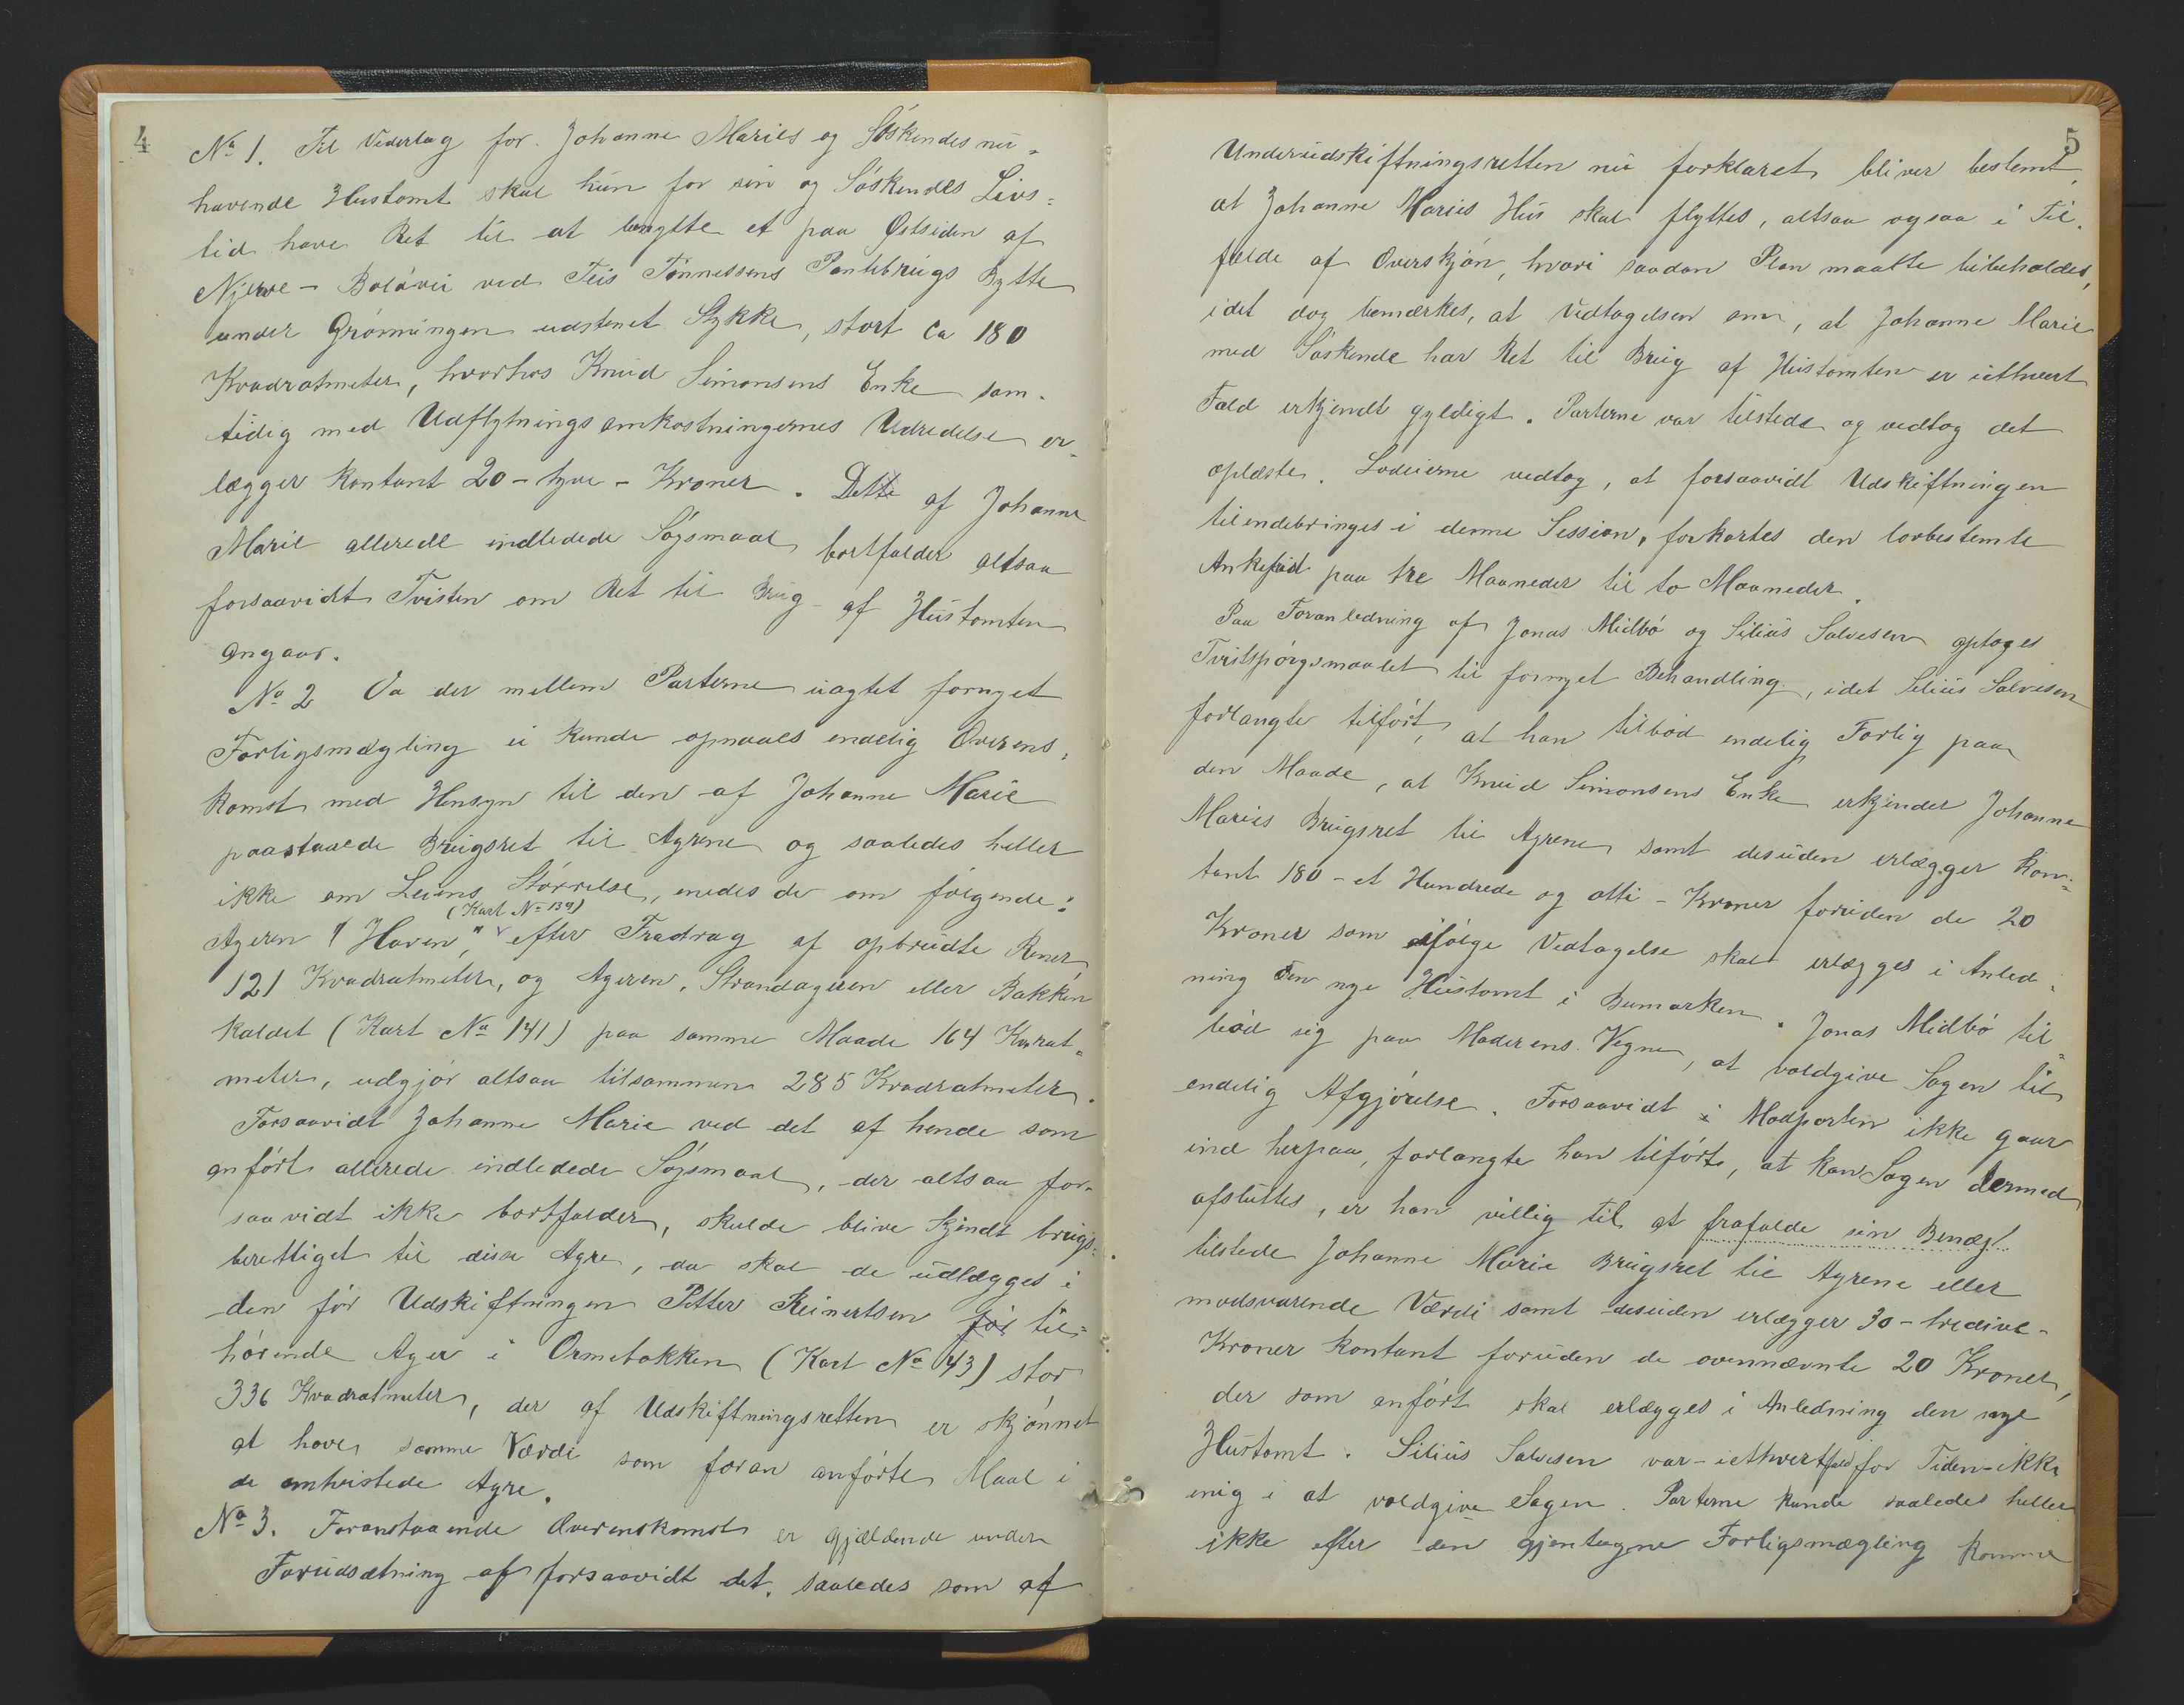 4
No 1. Til Vederlag for Johanne Maries og Søskendes nu-
havende Hustomt skal hun for sin og Søskendes Livs-
tid have Ret til at benytte et paa Østsiden af
Njerve - Baløvei ved Teis Tønnessens Pantebrugs Bytte
under Grønningen udstenet Stykke, stort ca 180
Kvadratmeter, hvorhos Knud Simonsens Enke sam-
tidig med Udflytningsomkostningernes Udredelse er-
lægger kontant 20 - tyve - Kroner. Dette af Johanne
Marie allerede indledede Søgsmaal bortfalder altsaa
forsaavidt Tvisten om Ret til Brug af Hustomten
angaar.
No 2 Da der mellem Parterne uagtet fornyet
Forligsmægling ei kunde opnaaes endelig Overens-
komst med Hensyn til den af Johanne Marie
paastaaede Brugsret til Agrene og saaledes heller
ikke om Leiens Størrelse, enedes de om følgende:
(Kart No 139)
Ageren "Haven," efter Fradrag af opbrudte Rener,
121 Kvadratmeter, og Ageren, Strandageren eller Bakken
kaldet (Kart No 141) paa samme Maade 164 Kvrat-
meter, udgjør altsaa tilsammen 285 Kvadratmeter.
Forsaavidt Johanne Marie ved det af hende som
anført allerede indledede Søgsmaal, der altsaa for-
saavidt ikke bortfalder, skulde blive kjendt brugs-
berettiget til disse Agre, da skal de udlægges i
den før Udskiftningen Petter Reinertsen før til-
hørende Ager i Ormebakken (Kart No 43) stor
336 Kvadratmeter, der af Udskiftningsretten er skjønnet
at have samme Værdi som foran anførte Maal i
de omtvistede Agre.
No 3. Foranstaaende Overenskomst er gjældende under
Forudsætning af forsaavidt det, saaledes som af
5
Underudskiftningsretten nu forklaret, bliver bestemt,
at Johanne Maries Hus skal flyttes, altsaa ogsaa i Til-
fælde af Overskjøn, hvori saadan Plan maatte bibeholdes,
idet dog bemærkes, at Vedtagelsen om, at Johanne Marie
med Søskende har Ret til Brug af Hustomten er iethvert
Fald erkjendt gyldigt. Parterne var tilstede og vedtog det
oplæste. Lodeierne vedtog, at forsaavidt Udskiftningen
tilendebringes i denne Session, forkortes den lovbestemte
Ankefrist paa tre Maaneder til to Maaneder.
Paa Foranledning af Jonas Midbø og Silius Salvesen optoges
Tvistspørgsmaalet til fornyet Behandling, idet Silius Salvesen
forlangte tilført, at han tilbød endelig Forlig paa
den Maade, at Knud Simonsens Enke erkjender Johanne
Maries Brugsret til Agrene samt desuden erlægger kon-
tant 180 - et Hundrede og otti - Kroner foruden de 20
Kroner som ifølge Vedtagelse skal erlægges i Anled-
ning den nye Hustomt i Bumarken. Jonas Midbø til-
bød sig paa Moderens Vegne, at voldgive Sagen til
endelig Afgjørelse. Forsaavidt Modparten ikke gaar
ind herpaa, forlangte han tilført, at kan Sagen dermed
afsluttes, er han villig til at frafalde sin Benægt.
tilstede Johanne Marie Brugsret til Agrene eller
modsvarende Værdi samt desuden erlægger 30 - tredive -
Kroner kontant foruden de ovennævnte 20 Kroner,
der som anført skal erlægges i Anledning den nye
Hustomt. Silius Salvesen var - iethvertfald for Tiden - ikke
enig i at voldgive Sagen. Parterne kunde saaledes heller
ikke efter den gjentagne Forligsmægling komme